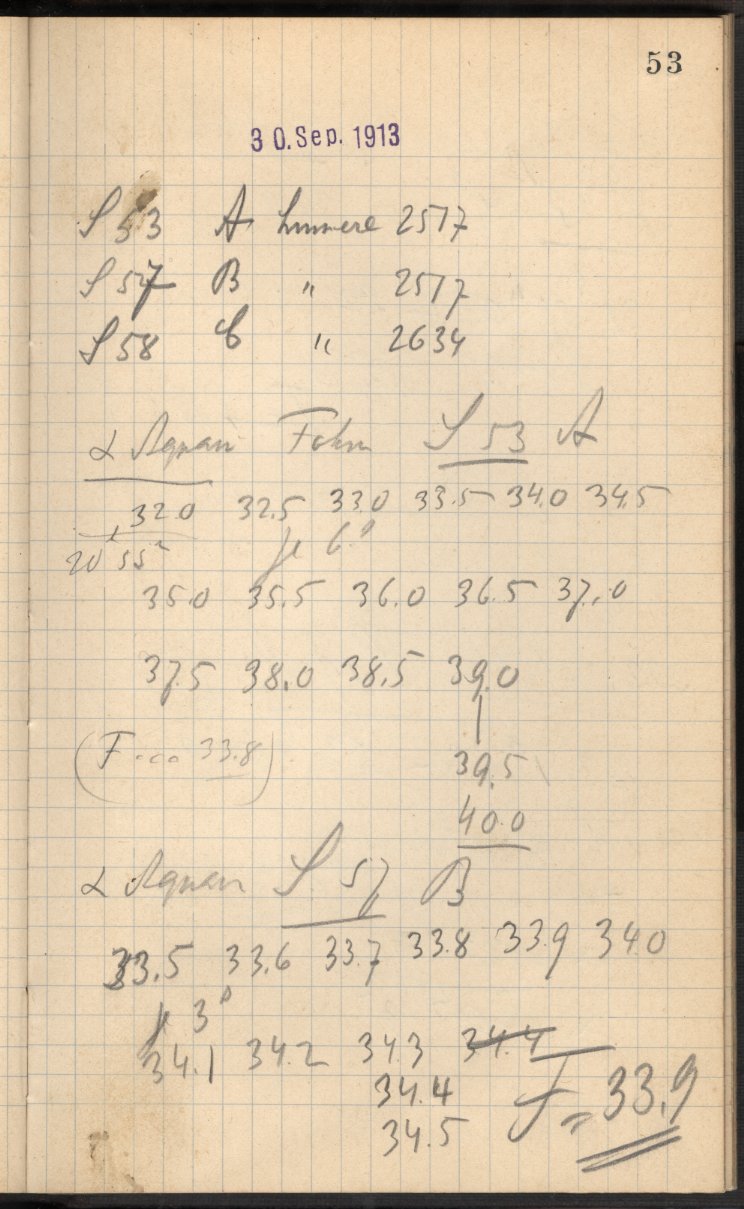 53
30. Sep. 1913
S 53 A Lumière 2517
S 57 B " 2517
S 58 C " 2634
α Aquarii Fokus S 53 A
32.0 32.5 33.0 33.5 34.0 34.5
20 55 je 6s
35.0 35.5 36.0 36.5 37.0
37.5 38.0 38.5 39.0
39.5
(F... 33.8)
40.0
α Aquarii S 57 B
33.5 33.6 33.7 33.8 33.9 34.0
je 3s
34.1 34.2 34.3 34.4
34.4
34.5
F = 33.9